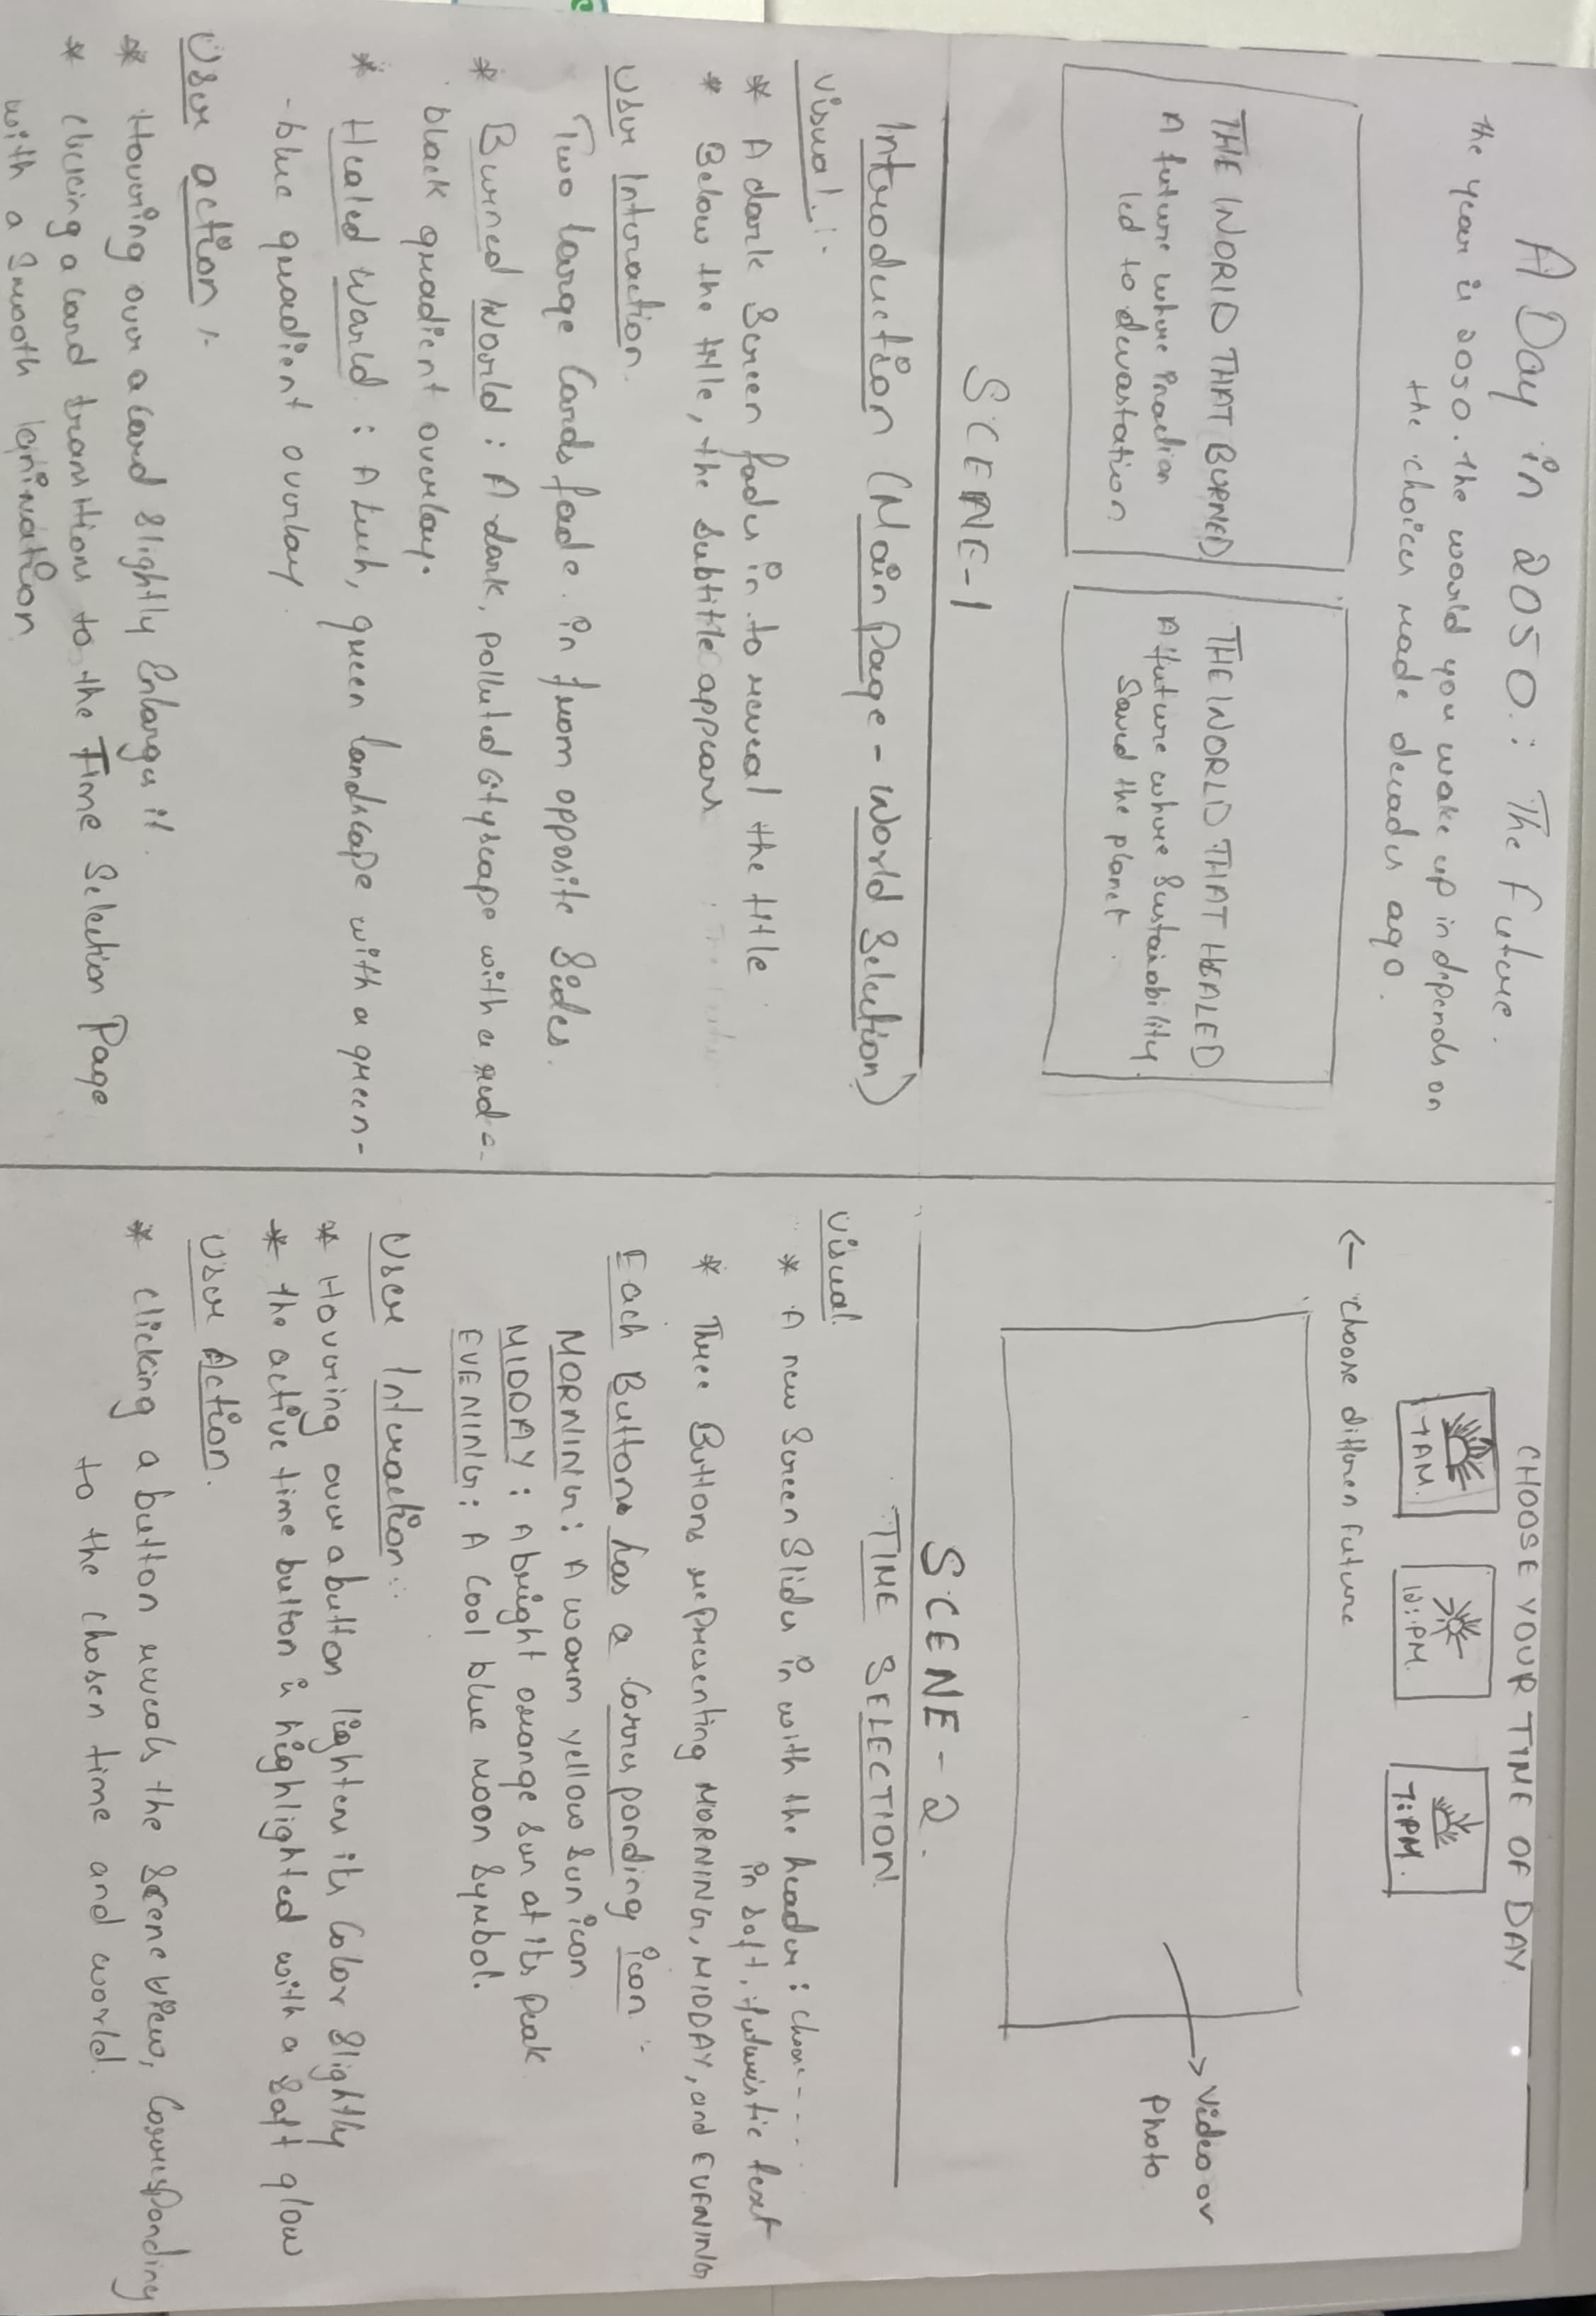 A Day in 2050: The Future.
the year is 2050. the world you wake up in depends on
the choices made decades ago.
THE WORLD THAT BURNED
A future where inaction
led to devastation
THE WORLD THAT HEALED
A future where Sustainability
Saved the planet.
SCENE-1
Introduction (Main Page - World Selection)
Visual:-
* A dark Screen fades in to reveal the title
* Below the title, the Subtitle appears
User Interaction.
Two large Cards fade in from opposite Sides.
* Burned World: A dark, polluted cityscape with a red-
black gradient overlay.
* Healed World: A Lush, green landscape with a green-
-blue gradient overlay.
User action:-
* Hovering over a card Slightly Enlarges it.
* clicking a card transitions to the Time Selection Page
with a Smooth
CHOOSE YOUR TIME OF DAY
7AM.
7:PM.
← choose differen Future
Video or
Photo
SCENE-2.
TIME SELECTION.
Visual.
* A new Screen Slides in with the header: choose----
in soft, futuristic text
* Three Buttons representing MORNING, MIDDAY, and EVENING
Each Button has a Corresponding icon:
MORNING: A warm yellow Sun icon
MIDDAY: A bright orange Sun at its Peak
EVENING: A Cool blue Moon Symbol.
User Interaction:
* Hovering over a button lightens its Color Slightly
* the active time button is highlighted with a Soft glow
User Action.
* Clicking a button reveals the Scene View, Corresponding
to the chosen time and world.